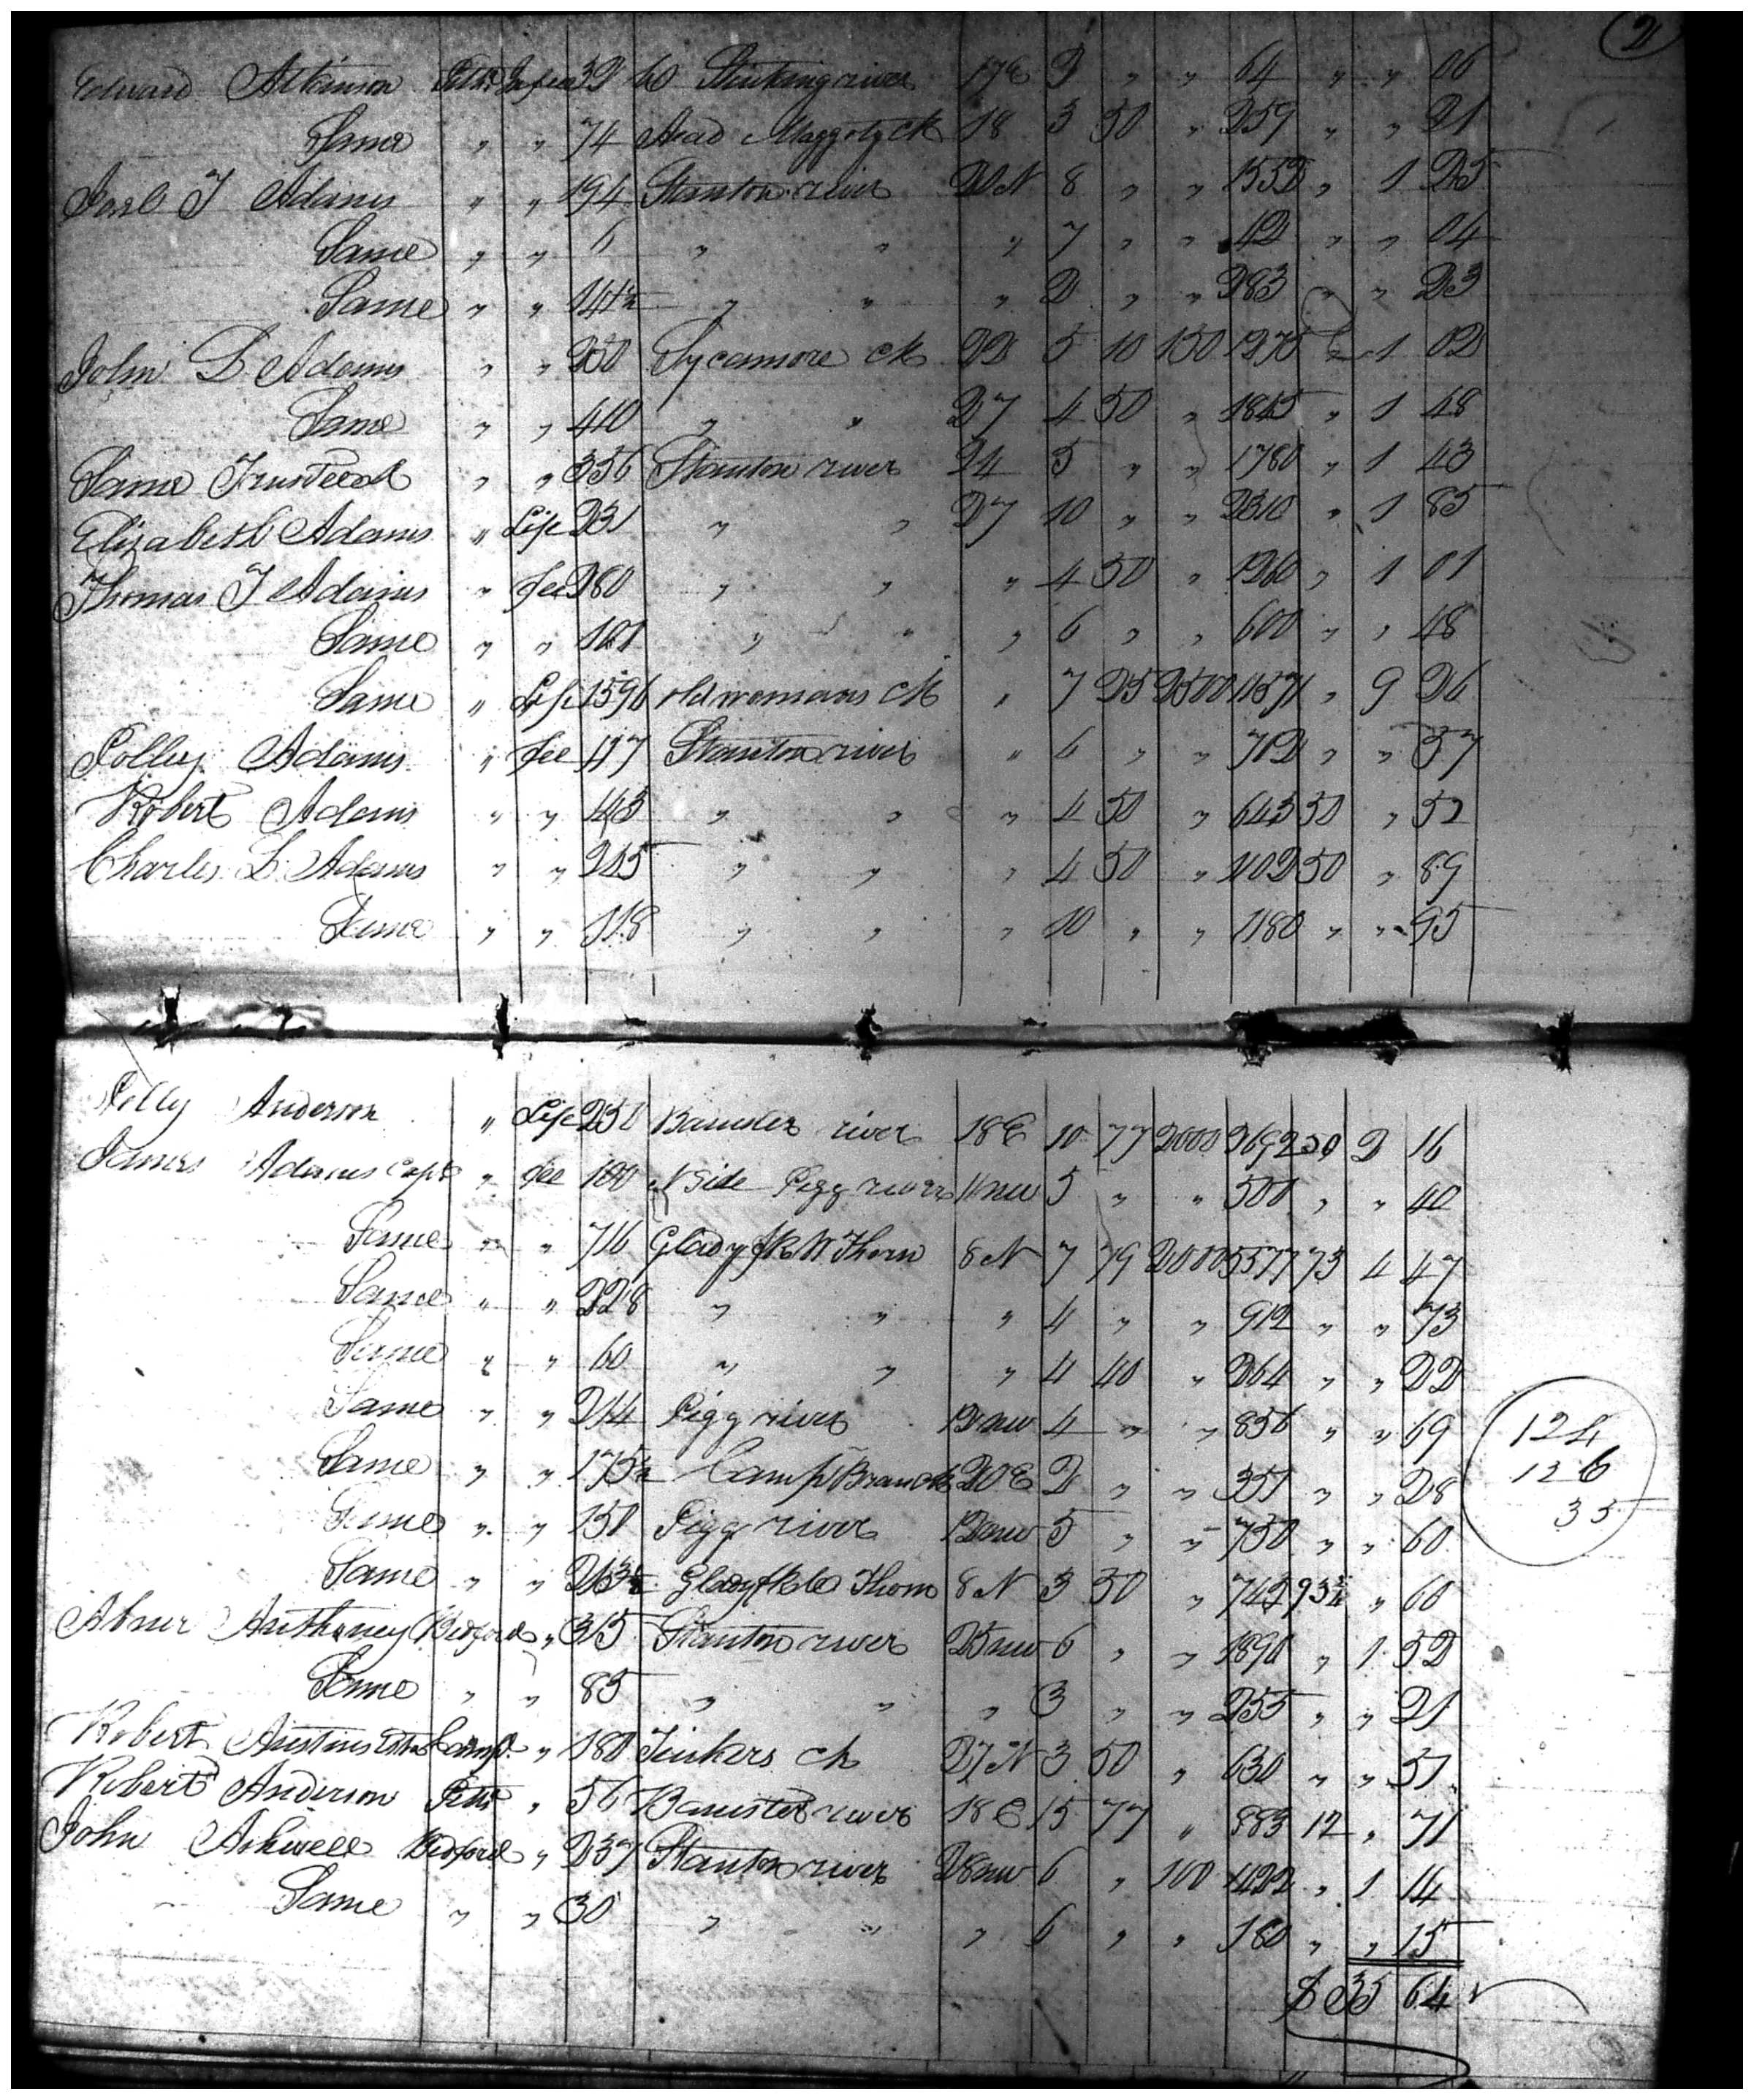 2
Edward Atkinson Pittsa In fee 32 to Stinking river 17 E 2 " " 64 " " 06
Same " " 74 Head Maggoty ck 18 3 50 " 259 " " 21
T Adams " " 194 Stanton river 20 N 8 " " 1552 " 1 25
Same " " 6 " " " 7 " " 42 " " 04
Same " " 141½ " " " 2 " " 283 " " 23
John L Adams " " 250 Sycamore ck 22 5 10 150 1275 " 1 02
Same " " 410 " " 27 4 50 " 1845 " 1 48
Same Trusteed " " 356 Stanton river 24 5 " " 1780 " 1 43
Elizabeth Adams " Life 231 " " 27 10 " " 2310 " 1 85
Thomas T Adams " fee 280 " " " 4 50 " 1260 " 1 01
Same " " 101 " " " 6 " " 600 " " 48
Same " Life 1596 old womans ck " 7 25 2500 11571 " 9 26
Polley Adams " fee 117 Stanton river " 6 " " 702 " " 57
Robert Adams " " 143 " " " 4 50 " 643 50 " 52
Charles L. Adams " " 245 " " " 4 50 " 1102 50 " 89
Same " " 118 " " " 10 " " 1180 " " 95
Polly Anderson " Life 250 Banister river 18 E 10 77 2000 2692 50 2 16
James Adams Capt " fee 100 N Side Pigg river 11 nw 5 " " 500 " " 40
Same " " 716 Glady fk W Thorn 8 N 7 79 2000 5577 73 4 47
Same " " 228 " " " 4 " " 912 " " 73
Same " " 60 " " " 4 40 " 264 " " 22
Same " " 214 Pigg river 12 nw 4 " " 856 " " 69
Same " " 175½ Camp Branch 20 E 2 " " 351 " " 28
Same " " 150 Pigg river 12 nw 5 " " 750 " " 60
Same " " Glady fk Thorn 8 N 3 50 " 60
Abner Anthoney Bedford " 315 Stanton river 25 nw 6 " " 1890 " 1 52
Same " " 85 " " " 3 " " 255 " " 21
Robert Austins Camp. " 180 Tinkers ck 27 N 3 50 " 630 " " 51
Robert Anderson Pitts " 56 Banister river 18 E 15 77 " 883 12 " 71
John Ashwell Bedford " 237 Stanton river 28 nw 6 " 100 1422 " 1 14
Same " " 30 " " " 6 " " 180 " " 15
$ 35 64
124
126
35